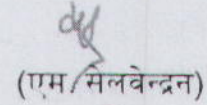 (एम सेलवेन्द्रन)